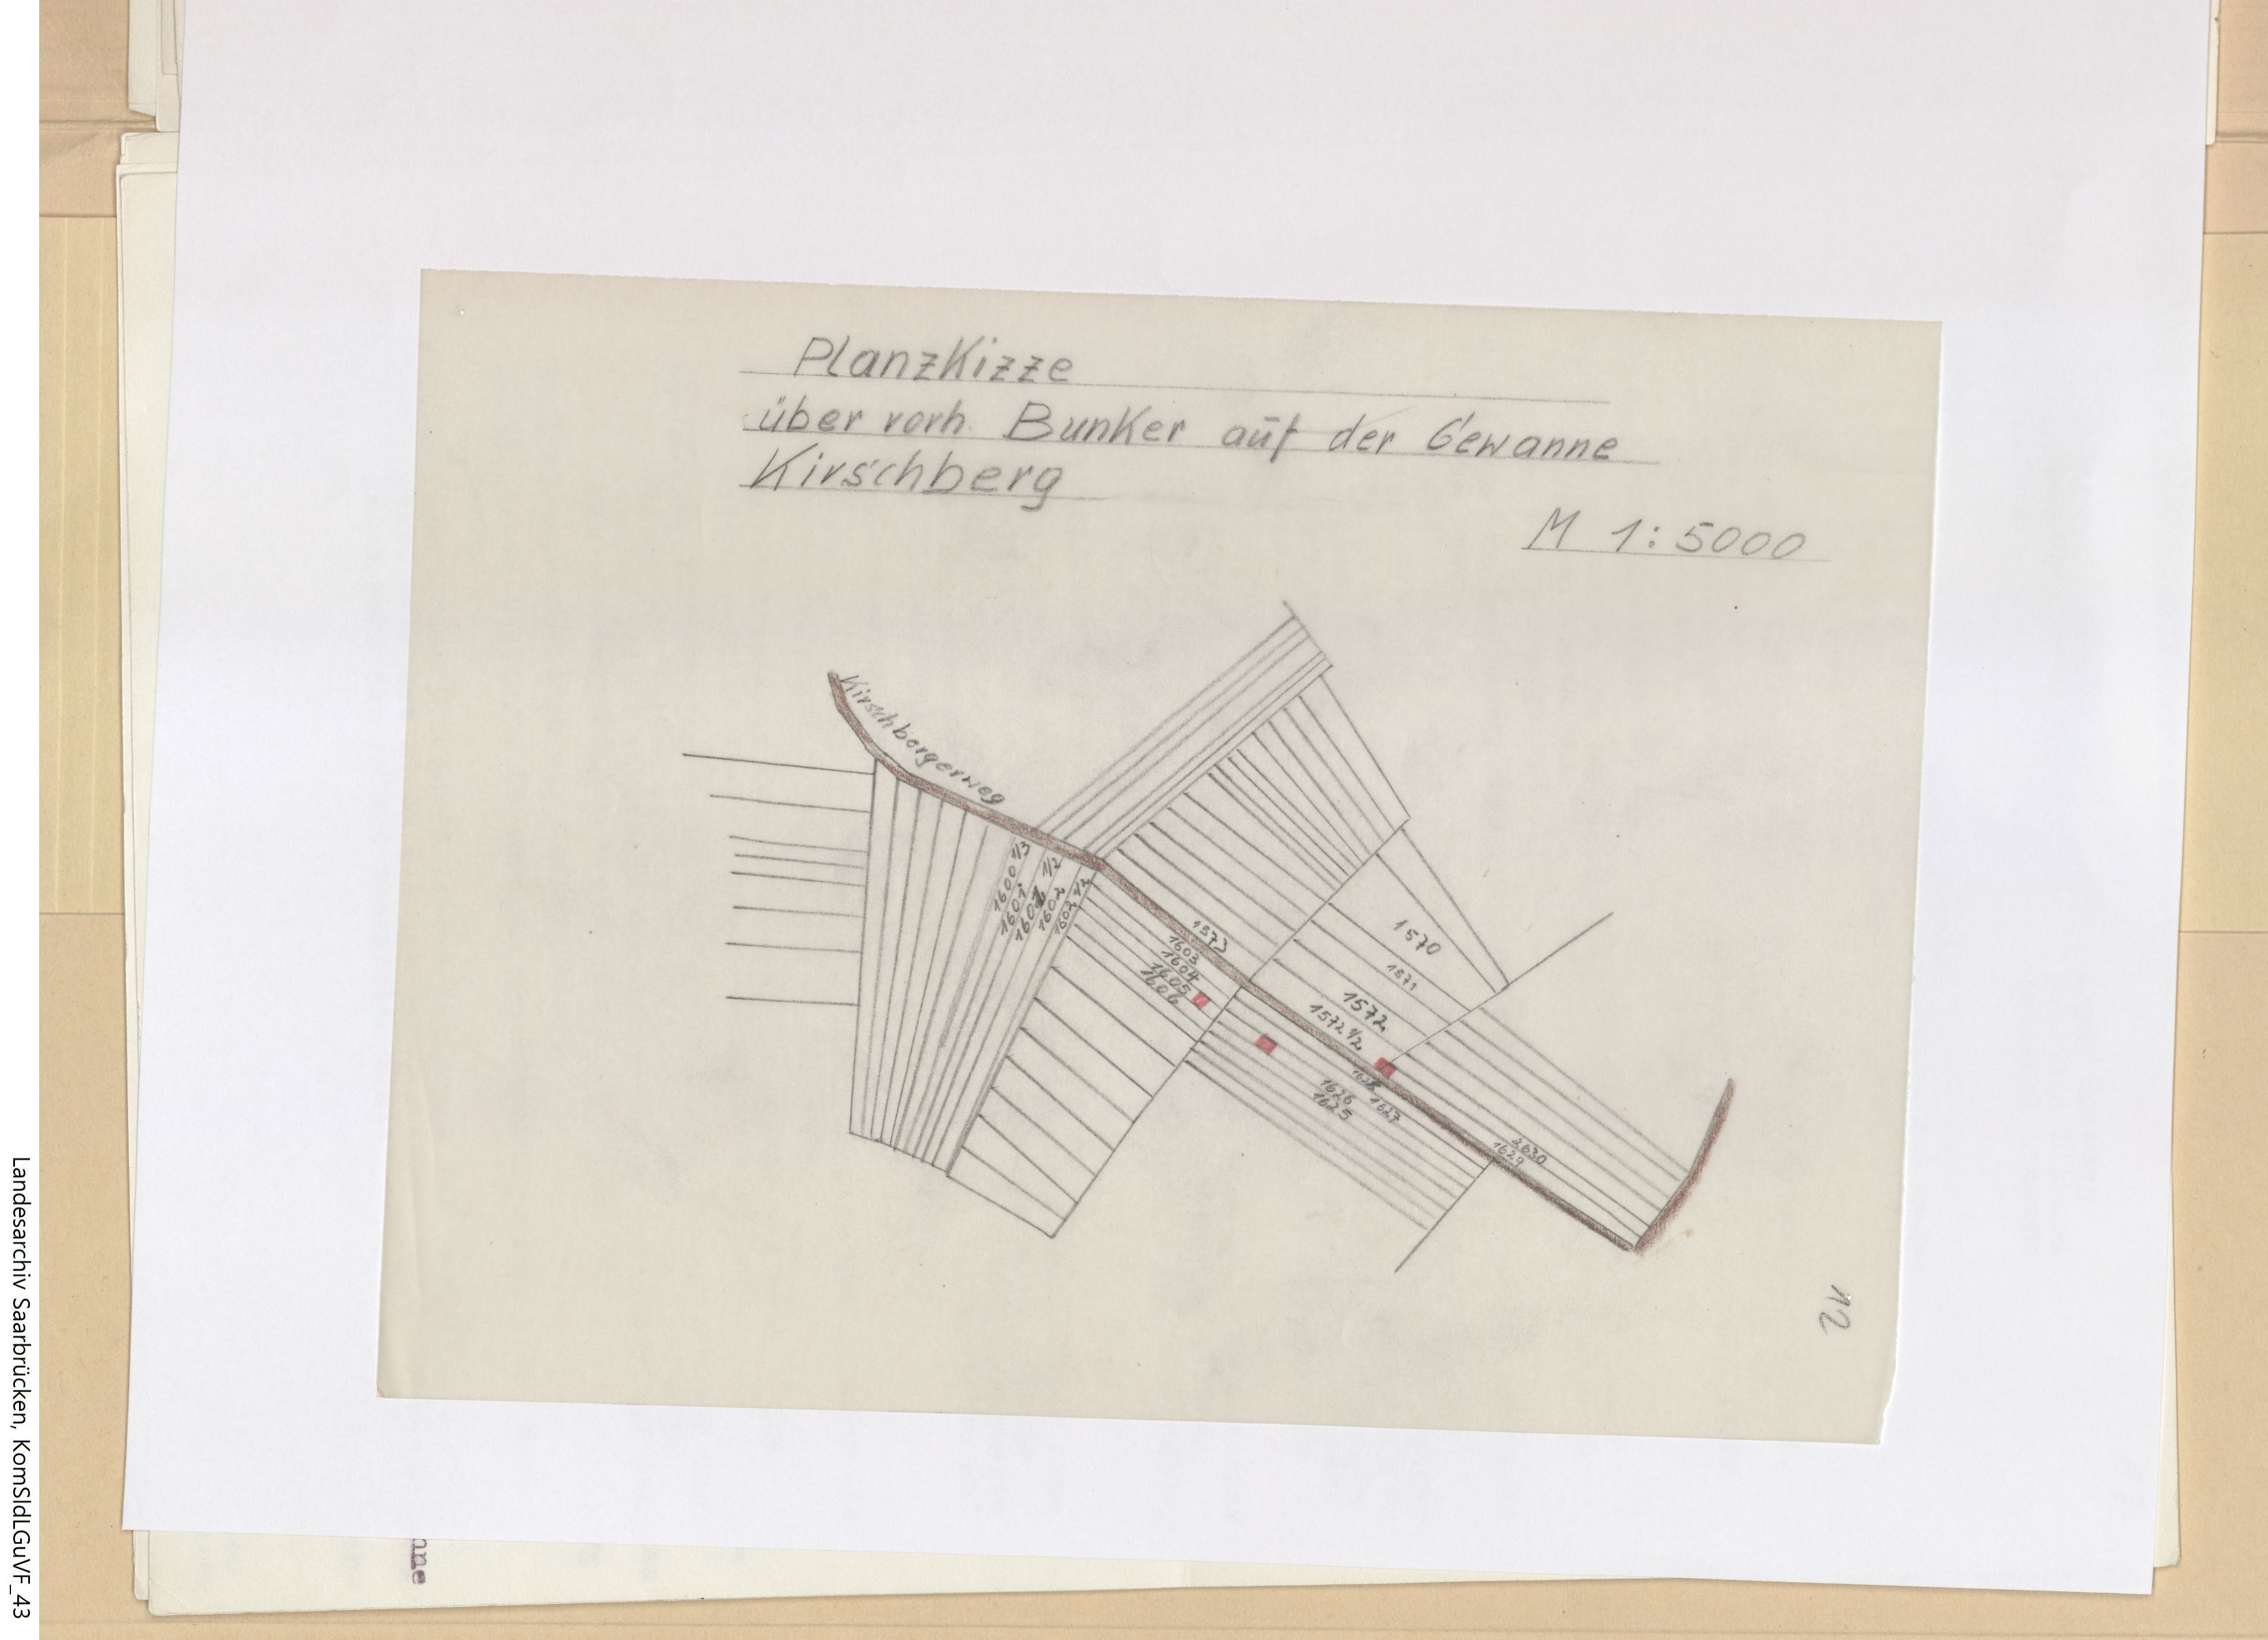 Planzkizze
über vorh. Bunker auf der Gewanne
Kirschberg
M 1:5000
Kirschbergerweg
1600 1/3
1601
1601 1/2
1602
1602 1/2
1573
1603
1604
1605
1606
1570
1571
1572
1572 1/2
1626
1625
1627
1629
2830
12
nne
Landesarchiv Saarbrücken, KomSldLGuVF_43